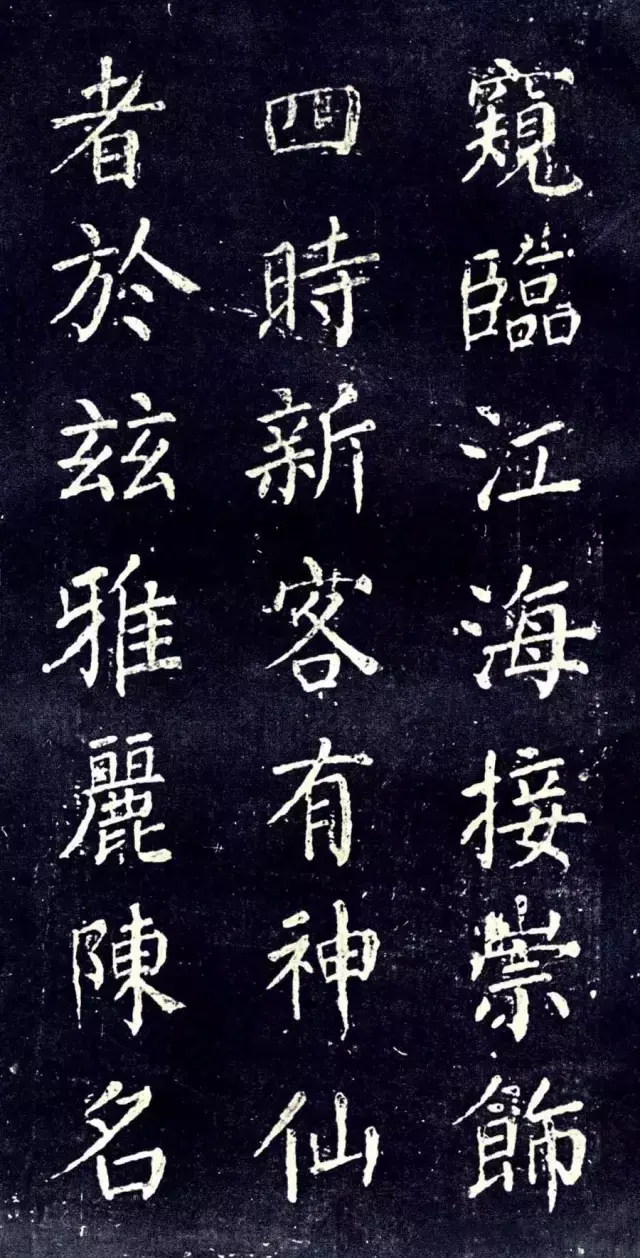 窺臨江海接崇飾
四時新客有神仙
者於茲雅麗陳名